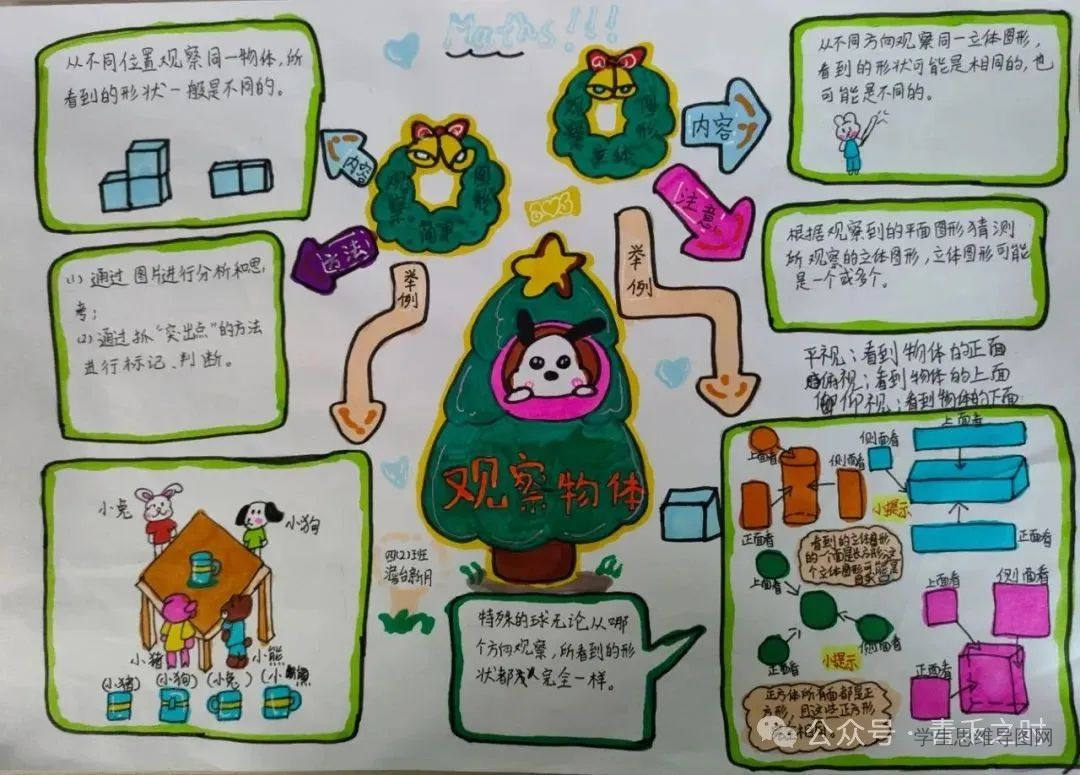 Maths!!!
从不同位置观察同一物体,所
看到的形状一般是不同的。
内容
观察
简单
图形
方法
(1) 通过图片进行分析和思
考;
(2) 通过抓“突出点”的方法
进行标记、判断。
举例
观察
立体
图形
内容
从不同方向观察同一立体图形,
看到的形状可能是相同的,也
可能是不同的。
注意
根据观察到的平面图形猜测
所观察的立体图形,立体图形可能
是一个或多个。
举例
平视:看到物体的正面
俯视:看到物体的上面
仰视:看到物体的下面
观察物体
四(2)班
澹台新月
小兔
小狗
小猪
小熊
(小猪)
(小狗)
(小兔)
(小熊)
特殊的球无论从哪
个方向观察,所看到的形
状都完全一样。
上面看
侧面看
正面看
侧面看
上面看
正面看
小提示
看到的立体图形
的一个面是长方形,这
个立体图形可能是
上面看
正面看
侧面看
小提示
上面看
侧面看
正面看
正方体所有面都是正
方形,且这些正方形
公众号·青禾之时
学生思维导图网